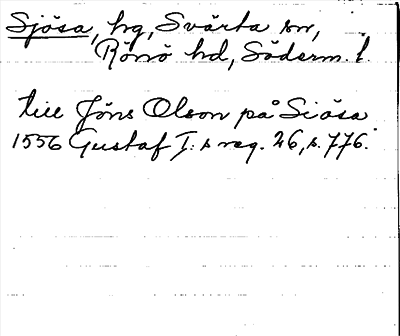 Sjösa, hg, Svärta sn,
Rönö hd, Söderm. l.
till Jöns Olson på Siösa
1556 Gustaf I:s reg. 26, s. 776.